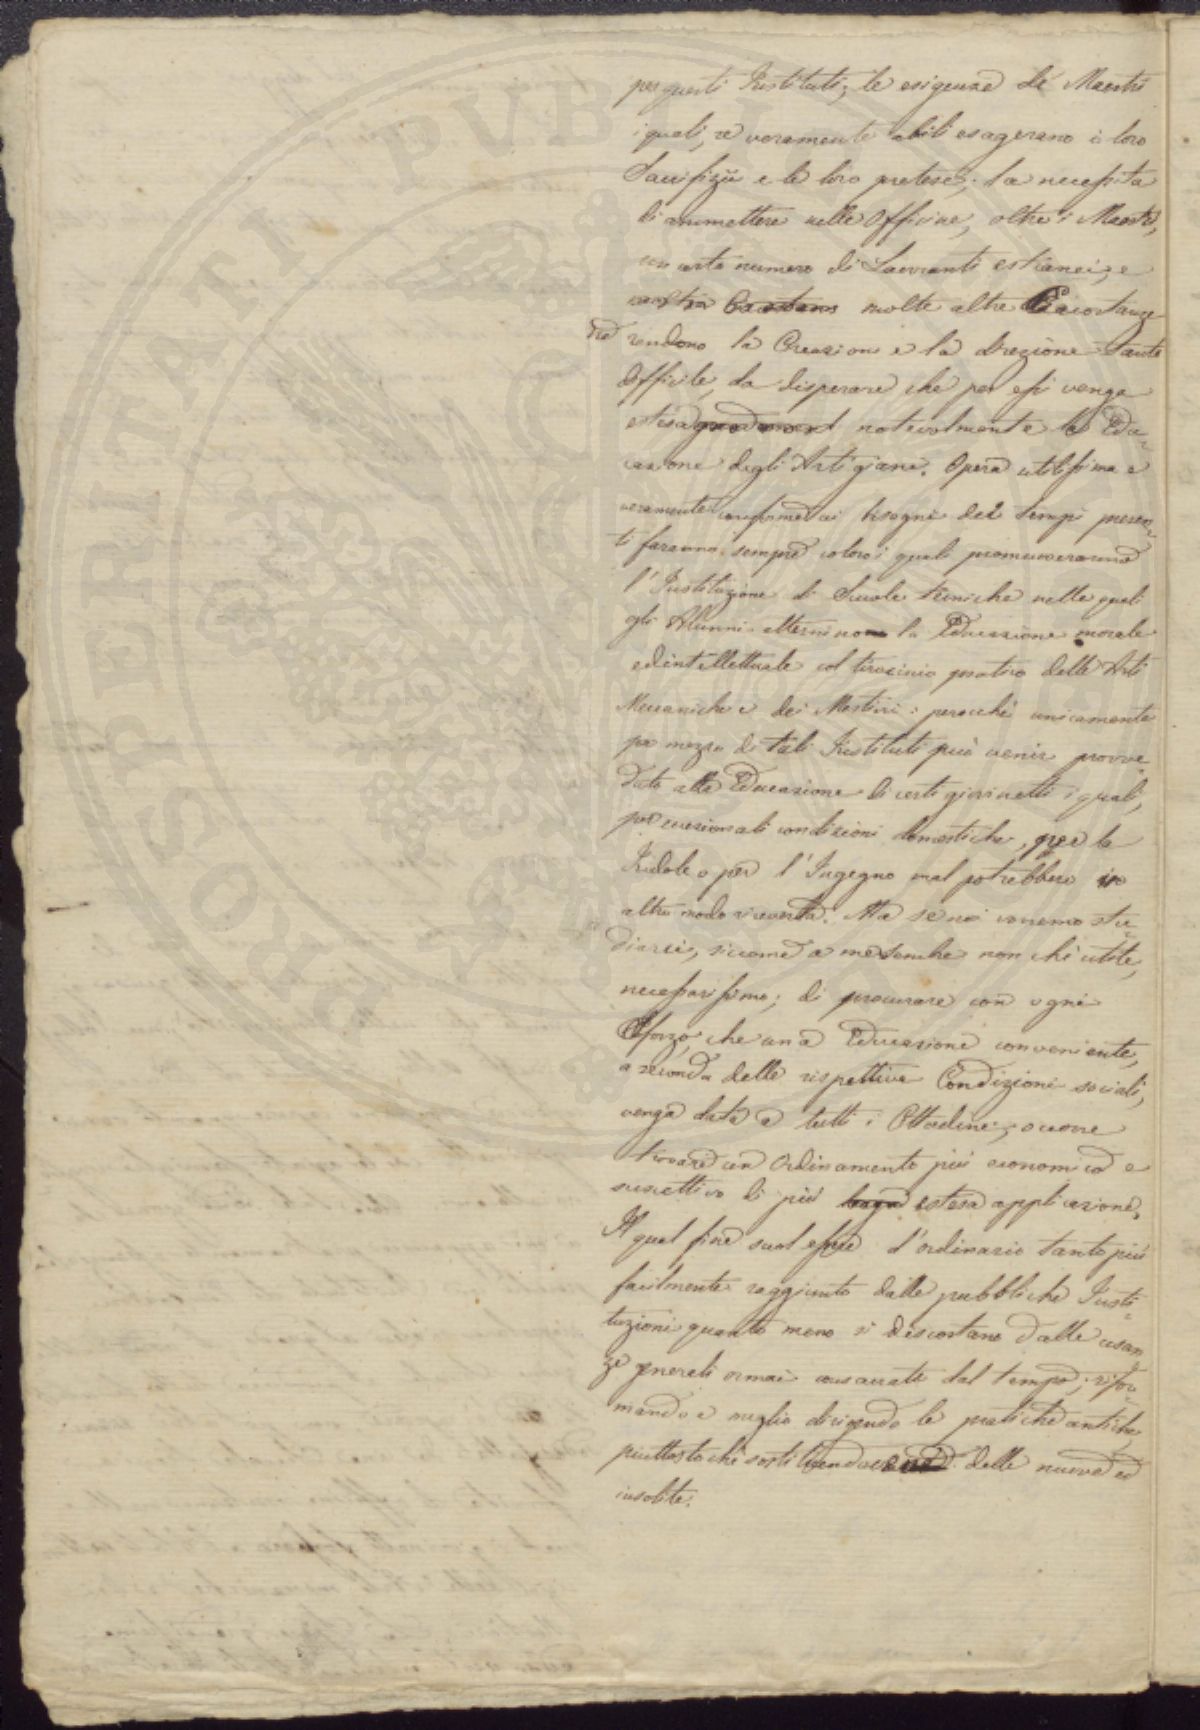 per questi Instituti; le esigenze de' Maestri
i quali, se veramente abili esagerano i loro
Sacrifizii e le loro pretese; la necessita
di ammettere nelle Officine, oltre i Maestri,
un certo numero di Lavoranti estranei; e
molte altre Circostanze
che rendono la Creazione e la direzione tanto
difficile, da disperare che per essi venga
estesa notevolmente la Edu-
cazione degli Artigiani. Opera utilissima e
veramente conforme ai bisogni dei tempi presen-
ti faranno sempre coloro i quali promuoveranno
l'Instituzione di Scuole tecniche nelle quali
gli Alunni alternino la Educazione morale
ed intellettuale col tirocinio pratico delle Arti
Meccaniche e dei Mestieri: perocchè unicamente
per mezzo di tali Instituti può venir provve
duto alla Educazione di certi giovinetti i quali,
per eccezionali condizioni domestiche, per la
Indole o per l'Ingegno mal potrebbero in
altro modo riceverla. Ma se noi vorremo stu-
diarci, siccome a me sembra non chè utile,
necessarissimo; di procurare con ogni
Sforzo, che una Educazione conveniente,
a seconda delle rispettive Condizioni sociali,
venga data a tutti i Cittadini; occorre
trovare un Ordinamento più economico e
suscettivo di più estesa applicazione,
Il qual fine suol essere d'ordinario tanto più
facilmente raggiunto dalle pubbliche Insti-
tuzioni quanto meno si discostano dalle usan
ze generali ormai consacrate dal tempo; rifor-
mando e meglio dirigendo le pratiche antiche,
piuttosto chè sostituendo delle nuove ed
insolite.